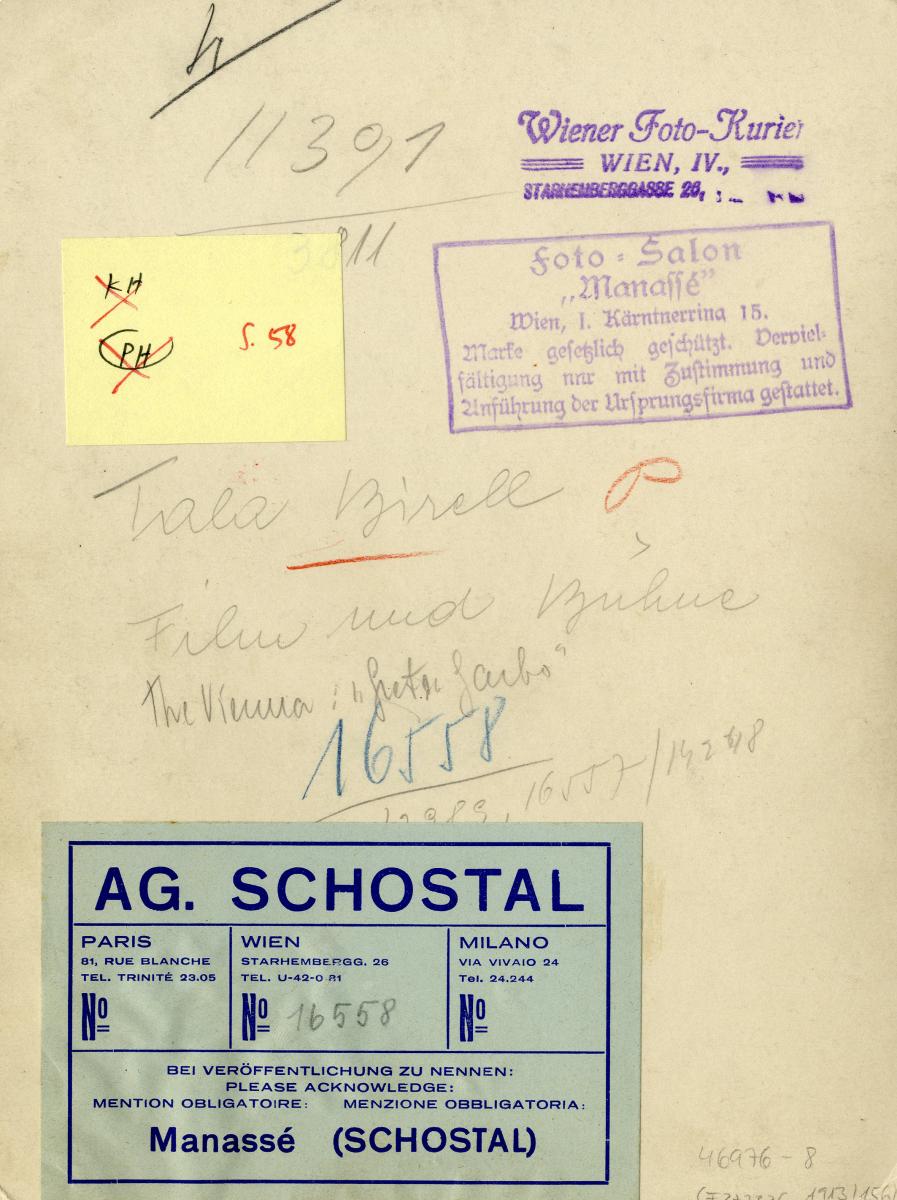 11391
Wiener Foto-Kurier
WIEN, IV.,
STARHEMBERGGASSE 26,
3811
Foto-Salon
„Manassé”
Wien, I. Kärntnerring 15.
Marke gesetzlich geschützt. Verviel-
fältigung nur mit Zustimmung und
Anführung der Ursprungsfirma gestattet.
KH
PH S. 58
Tala Birell
Film und Bühne
The Vienna: „Greta Garbo“
16558
16557/14248
AG. SCHOSTAL
PARIS
81, RUE BLANCHE
TEL. TRINITÉ 23.05
No
WIEN
STARHEMBERGG. 26
TEL. U-42-0 81
No 16558
MILANO
VIA VIVAIO 24
Tel. 24.244
No
BEI VERÖFFENTLICHUNG ZU NENNEN:
PLEASE ACKNOWLEDGE:
MENTION OBLIGATOIRE: MENZIONE OBBLIGATORIA:
Manassé (SCHOSTAL)
46976-8